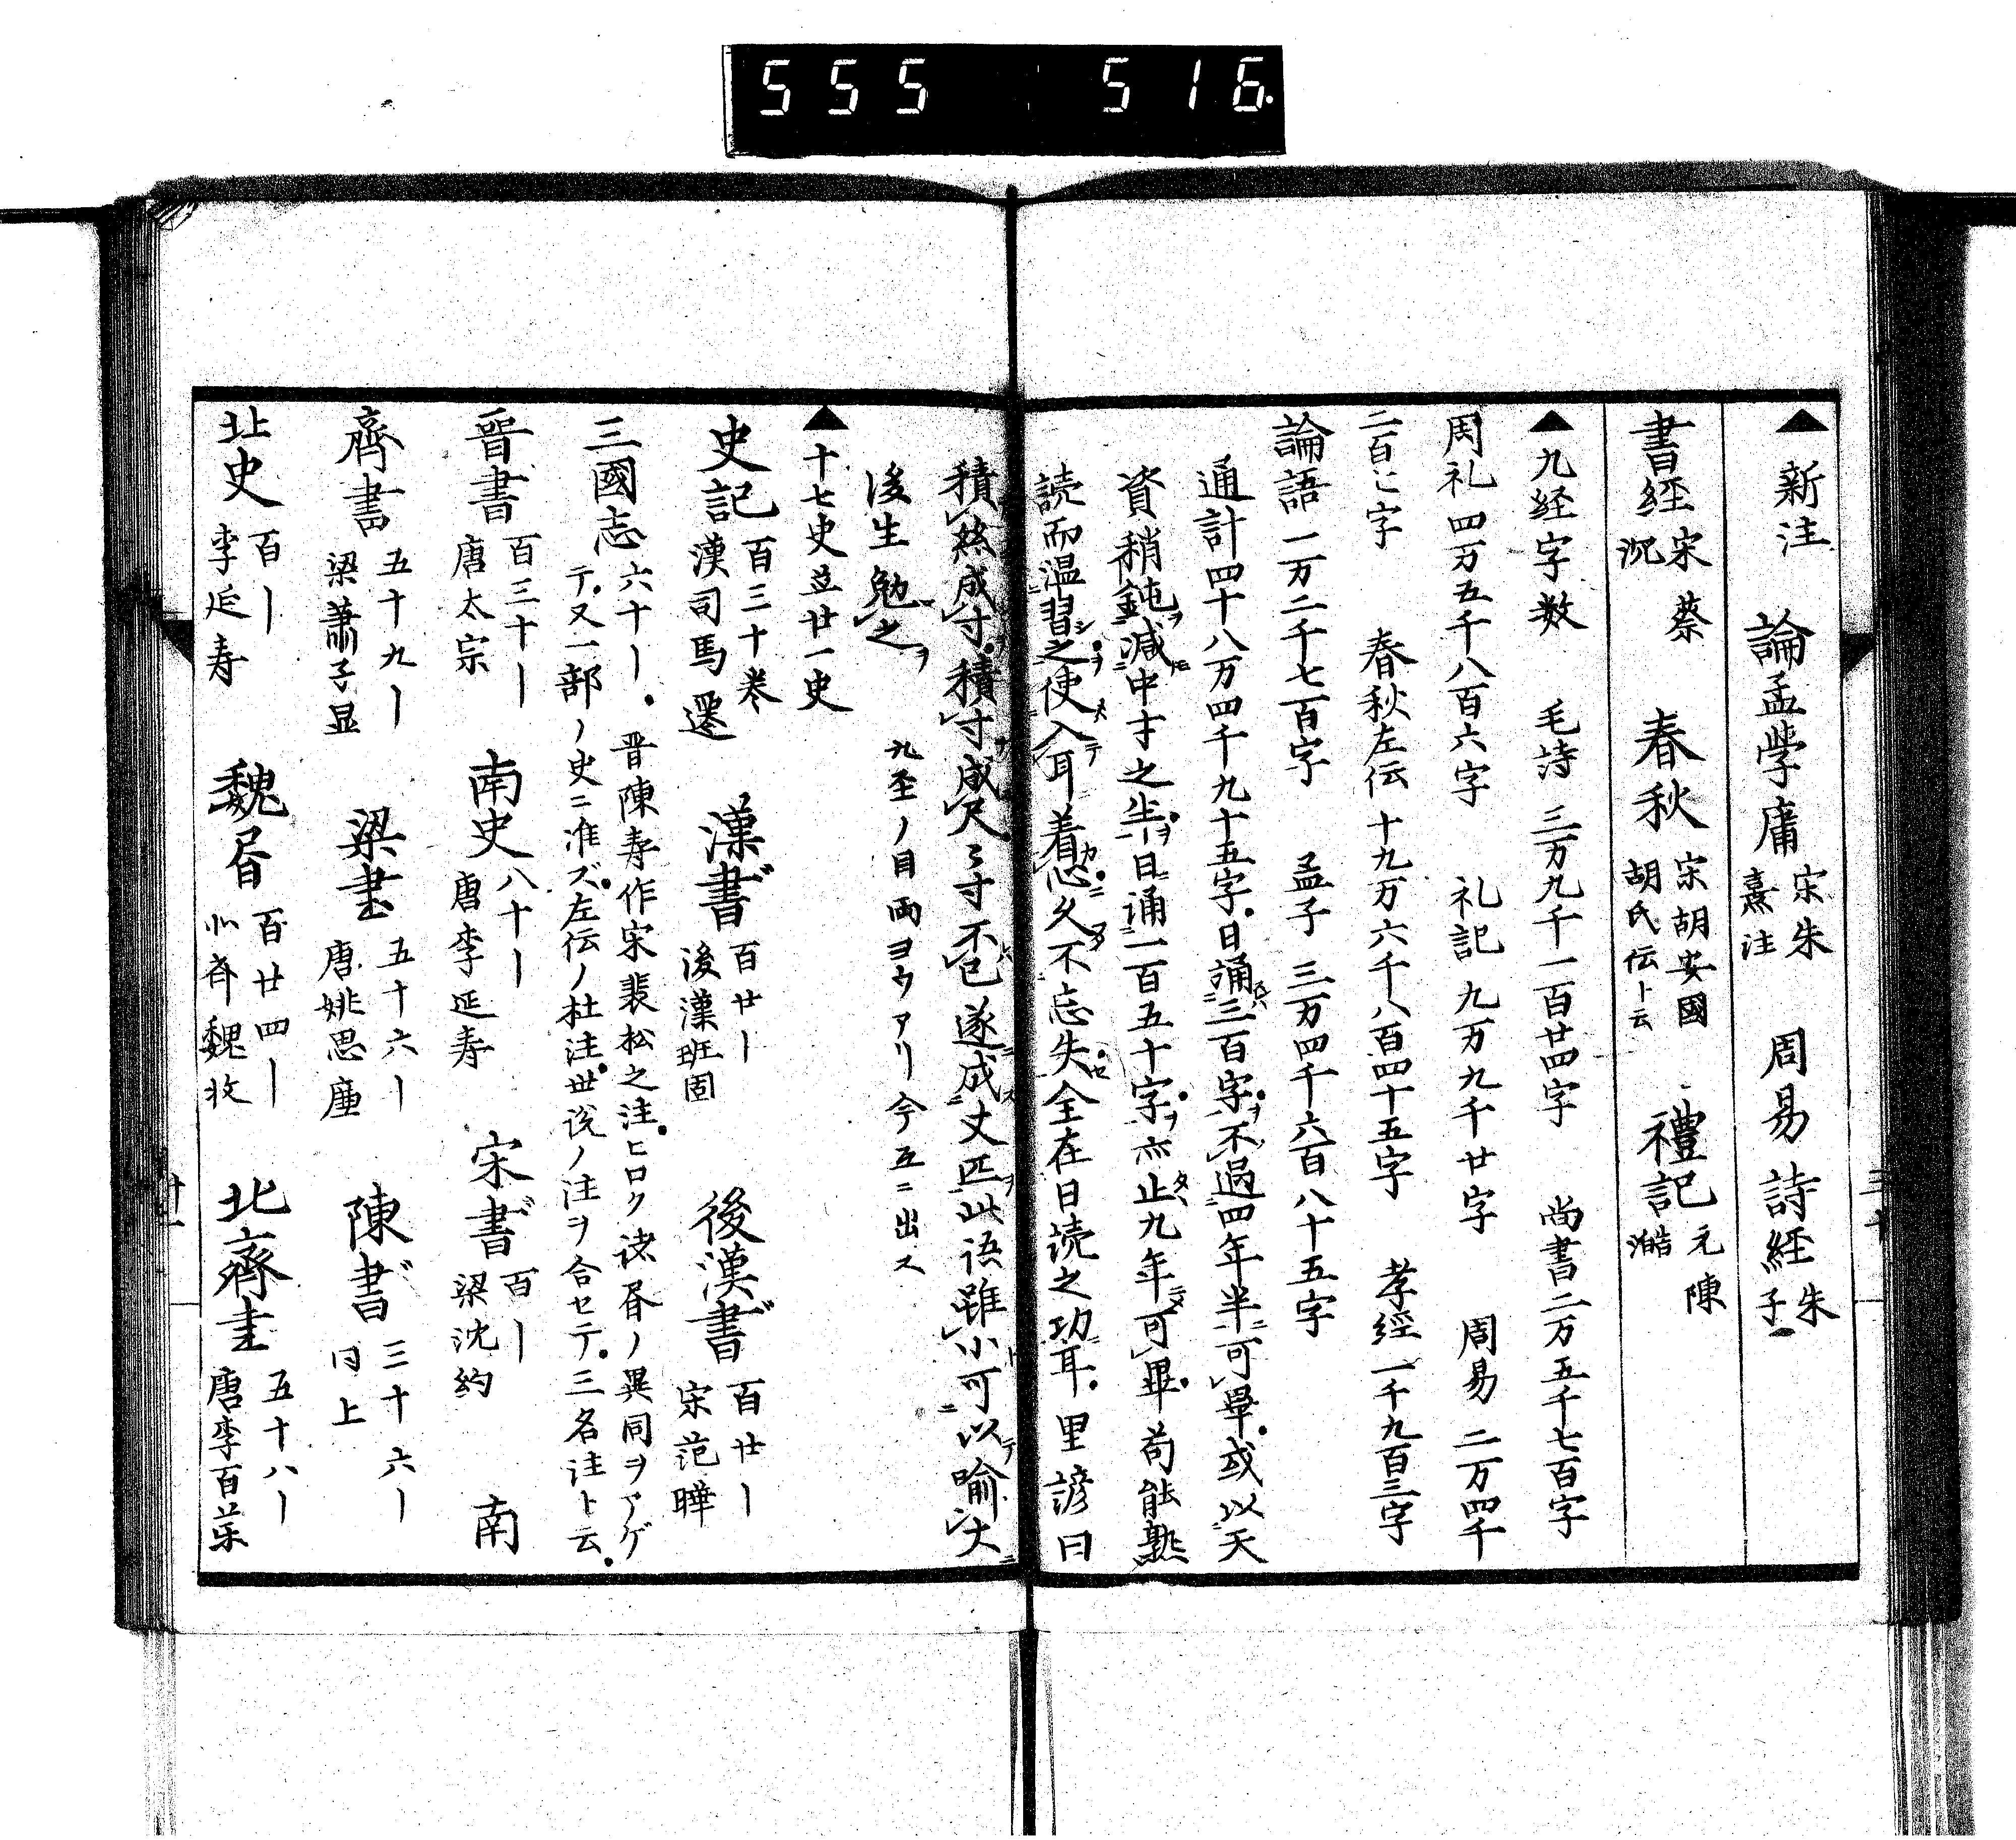 555 516
▲新注 論孟学庸 宋朱熹注 周易 詩経 朱子
書経 宋蔡沉 春秋 宋胡安國 胡氏伝ト云 禮記 元陳澔
▲九経字数 毛詩 三万九千一百廿四字 尚書 二万五千七百字
周礼 四万五千八百六字 礼記 九万九千廿字 周易 二万四千
二百七字 春秋左伝 十九万六千八百四十五字 孝経 一千九百三字
論語 一万二千七百字 孟子 三万四千六百八十五字
通計四十八万四千九十五字日誦三百字不過四年半可畢或以天
資稍鈍減中才之半日誦一百五十字亦止九年可畢苟能熟
読而温習之使入耳着心久不忘失全在日読之功耳里諺曰
積絲成寸積寸成尺々寸不已遂成丈匹此语雖小可以喻大
後生勉之 九至ノ目両ヨウアリ今互ニ出ス
▲十七史並廿一史
史記 百三十巻 漢司馬遷 漢書 百廿｜ 後漢班固 後漢書 百廿｜ 宋范曄
三國志 六十｜晋陳寿作宋裴松之注ヒロク諸書ノ異同ヲアゲ
テ又一部ノ史ニ准ズ左伝ノ杜注世说ノ注ヲ合セテ三名注ト云
晉書 百三十｜ 唐太宗 南史 八十｜ 唐李延寿 宋書 百｜ 梁沈約 南
齊書 五十九｜ 梁蕭子显 梁書 五十六｜ 唐姚思廉 陳書 三十六｜ 同上
北史 百｜ 李延寿 魏書 百廿四｜ 北斉魏收 北齊書 五十八｜ 唐李百薬
三十
廿一